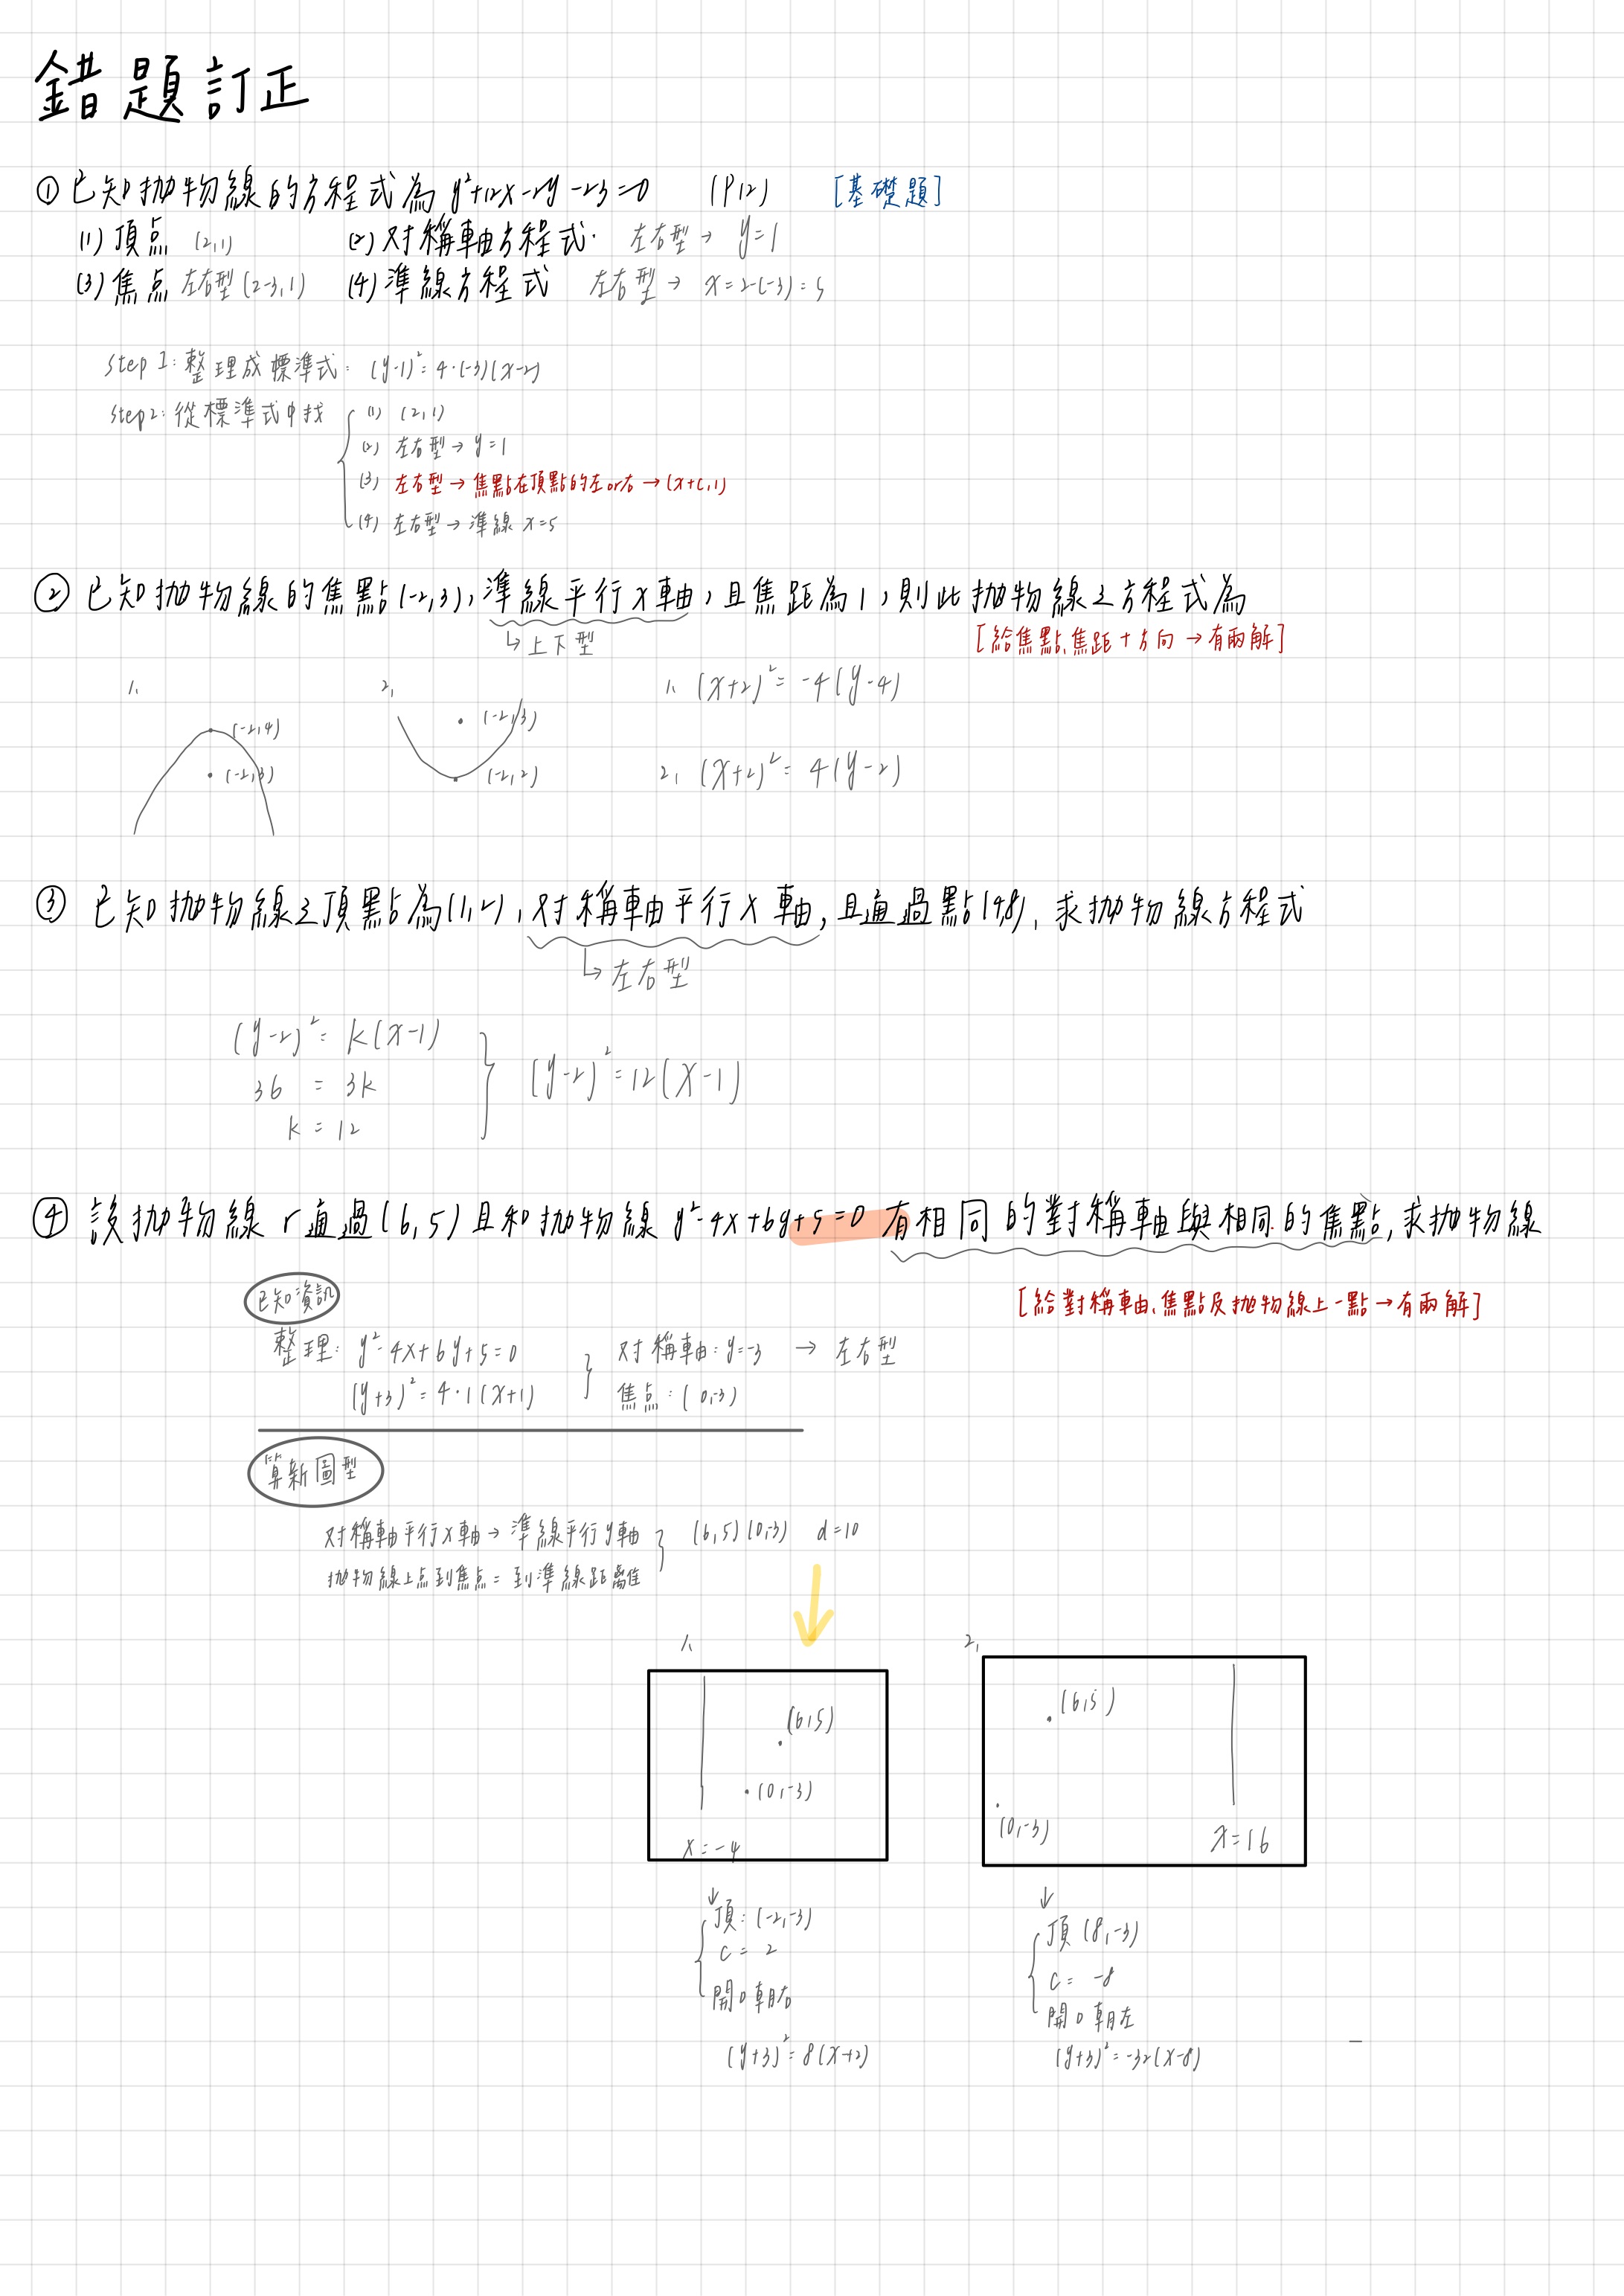 錯題訂正
① 已知拋物線的方程式為 y²+12x-2y-23=0 (P12) [基礎題]
(1) 頂点 (2,1) (2) 对稱軸方程式. 左右型 → y=1
(3) 焦点 左右型 (2-3,1) (4) 準線方程式 左右型 → x=2-(-3)=5
Step 1: 整理成標準式: (y-1)²=4·(-3)(x-2)
Step2: 從標準式中找
(1) (2,1)
(2) 左右型 → y=1
(3) 左右型 → 焦點在頂點的左or右 → (x+c,1)
(4) 左右型 → 準線 x=5
② 已知拋物線的焦點(-2,3), 準線平行x軸, 且焦距為1, 則此拋物線之方程式為
↳ 上下型
[給焦點、焦距+方向 → 有兩解]
1. (-2,4) (-2,3)
2. (-2,3) (-2,2)
1. (x+2)²=-4(y-4)
2. (x+2)²=4(y-2)
③ 已知拋物線之頂點為(1,2), 对稱軸平行x軸, 且通過點(4,8), 求拋物線方程式
↳ 左右型
(y-2)²=k(x-1)
36=3k
k=12
(y-2)²=12(x-1)
④ 設拋物線 r 通過(6,5)且和拋物線 y²-4x+6y+5=0 有相同的對稱軸與相同的焦點, 求拋物線
[給對稱軸、焦點及拋物線上一點 → 有兩解]
已知資訊
整理: y²-4x+6y+5=0 对稱軸: y=-3 → 左右型
(y+3)²=4·1(x+1) 焦点: (0,-3)
算新圖型
对稱軸平行x軸 → 準線平行y軸 (6,5)(0,-3) d=10
拋物線上点到焦点=到準線距離
1.
(6,5)
(0,-3)
x=-4
2.
(6,5)
(0,-3)
x=16
↓
頂: (-2,-3)
c=2
開口朝右
(y+3)²=8(x+2)
↓
頂 (8,-3)
c=-8
開口朝左
(y+3)²=-32(x-8)